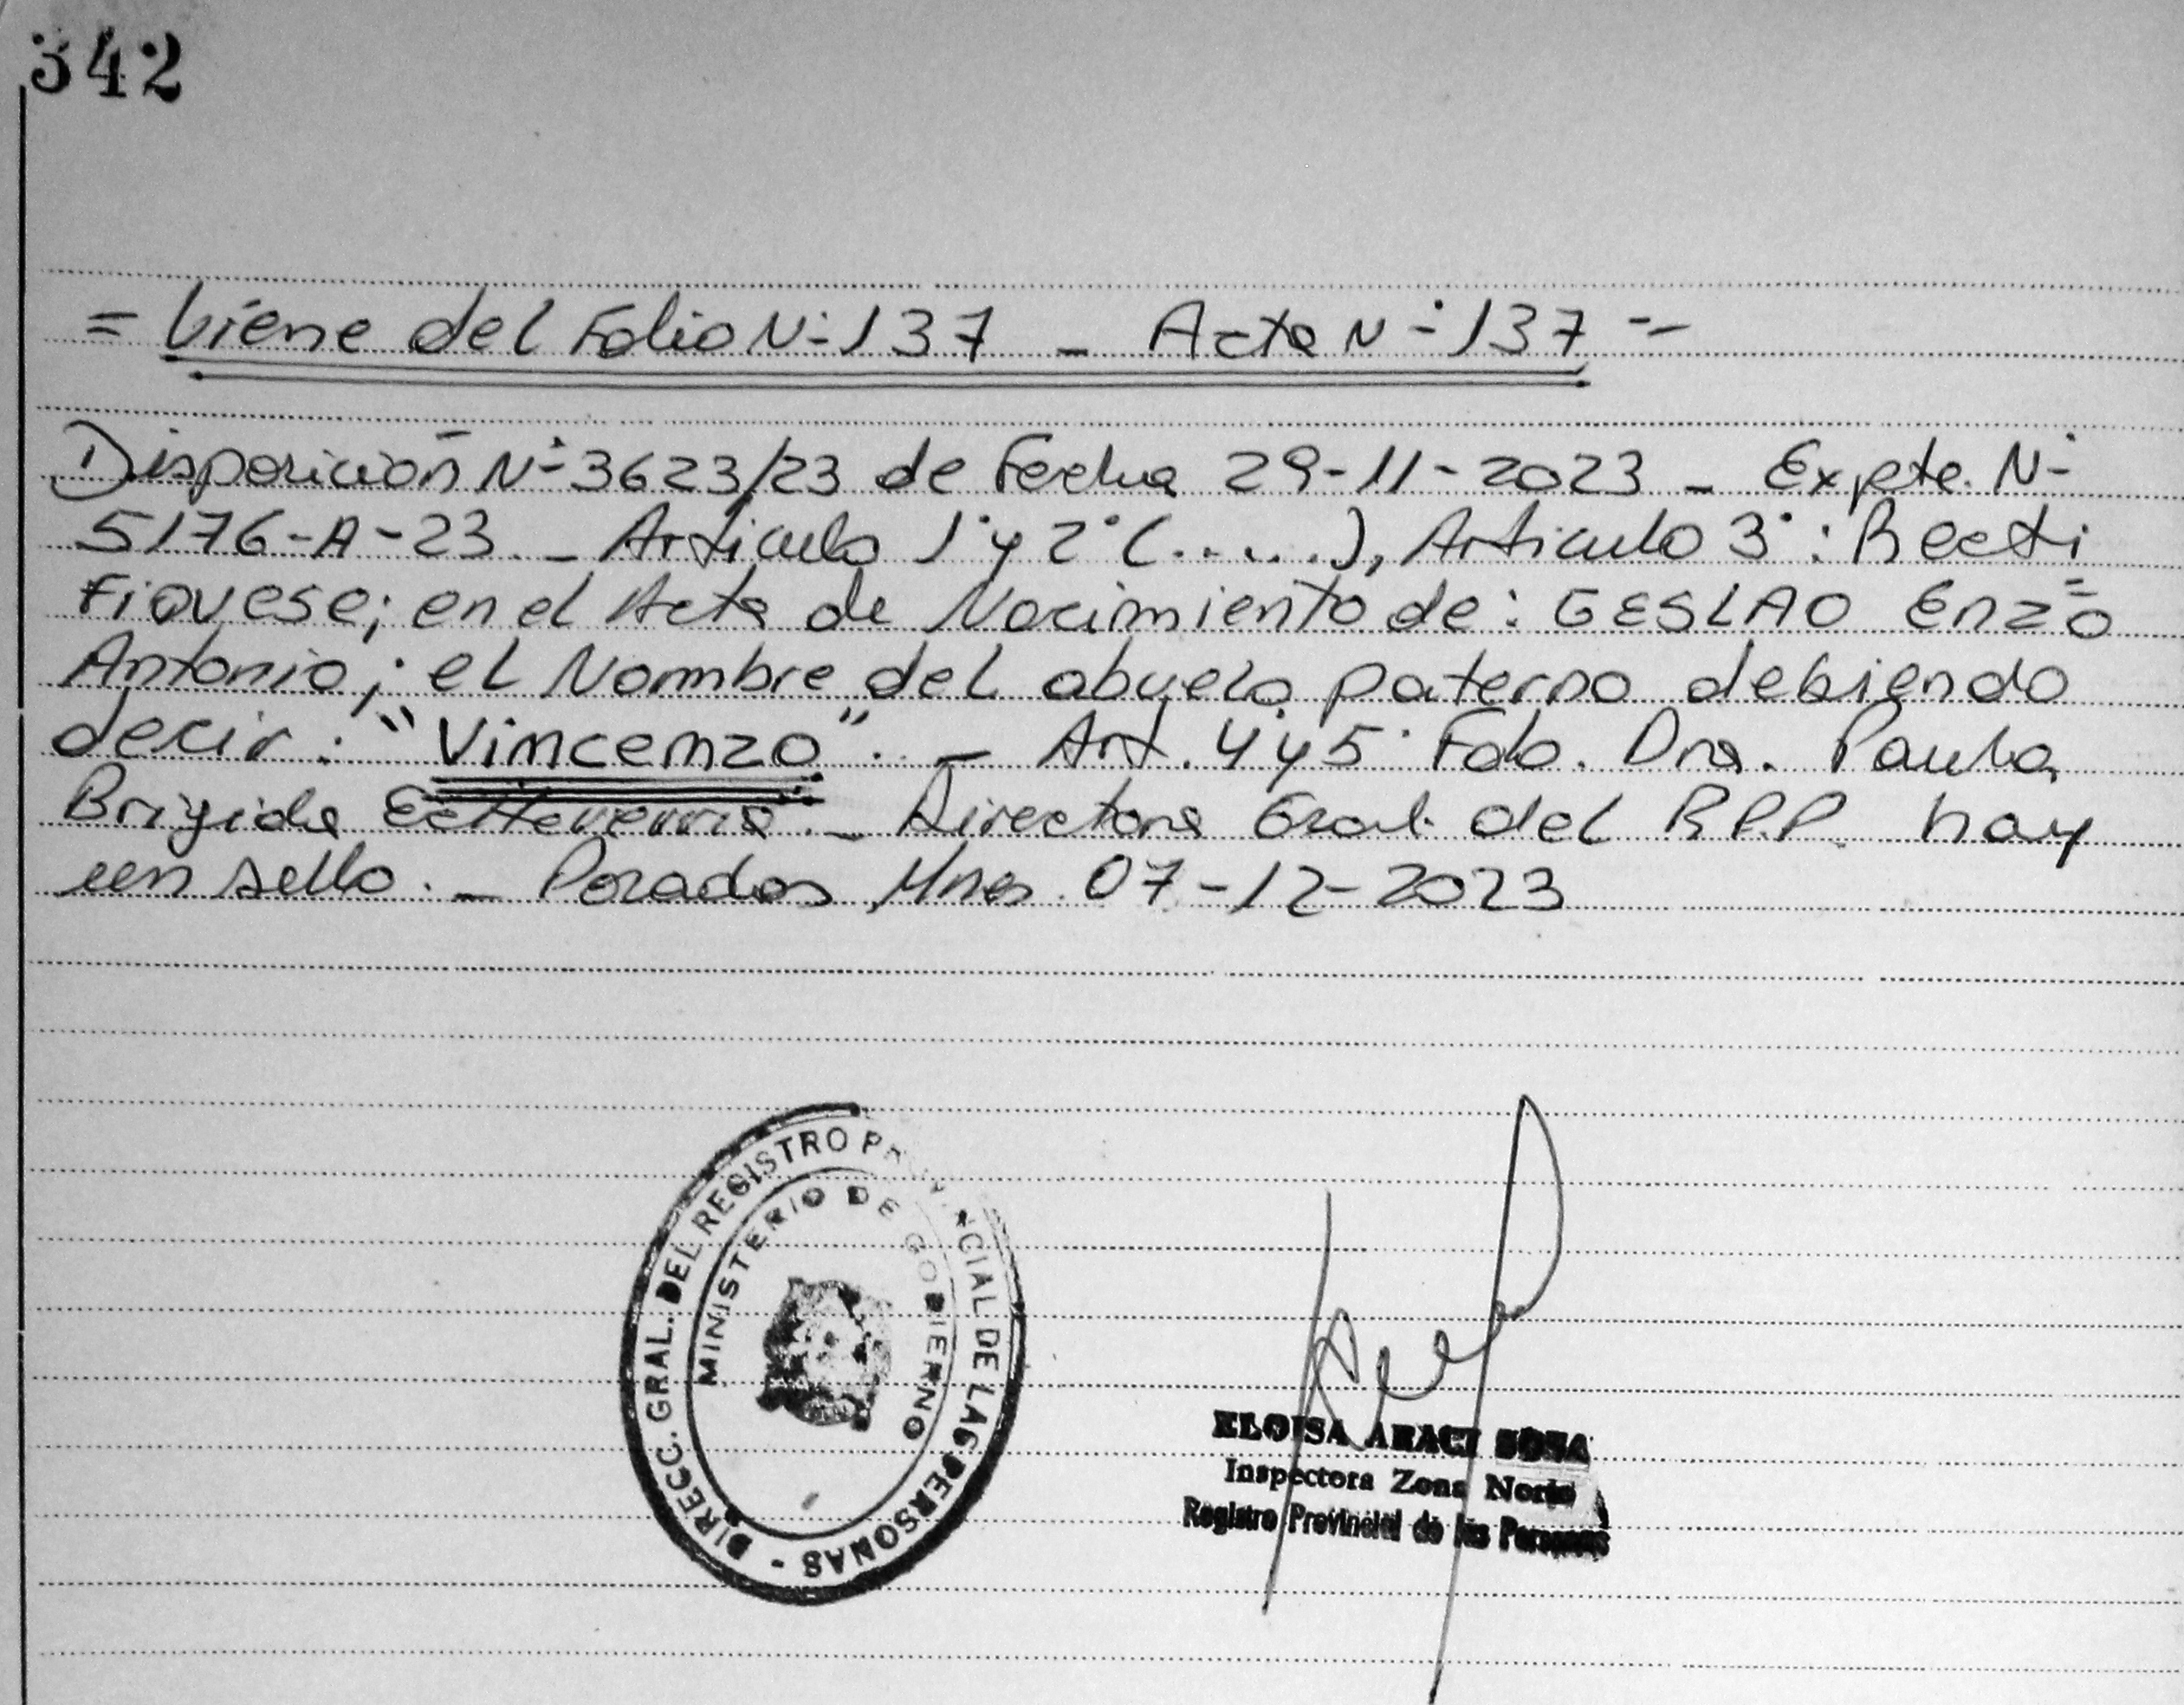 342
= Viene del Folio N° 137 - Acta N° 137 =
Disposición N° 3623/23 de Fecha 29-11-2023 - Expte. N°
5176-A-23. - Articulo 1° y 2° (.....), Articulo 3°: Recti
Fiquese; en el Acta de Nacimiento de: GESLAO Enzo
Antonio; el Nombre del abuelo paterno debiendo
decir: "Vincenzo". - Art. 4 y 5° Fdo. Dra. Paula
Brigida - Directora Gral. del R.P.P. hay
un sello. - Posadas, Mnes 07-12-2023
DIRECC. GRAL. DEL REGISTRO PROVINCIAL DE LAS PERSONAS -
MINISTERIO DE GOBIERNO
ELOISA ARACI SOSA
Inspectora Zona Norte
Registro Provincial de las Personas